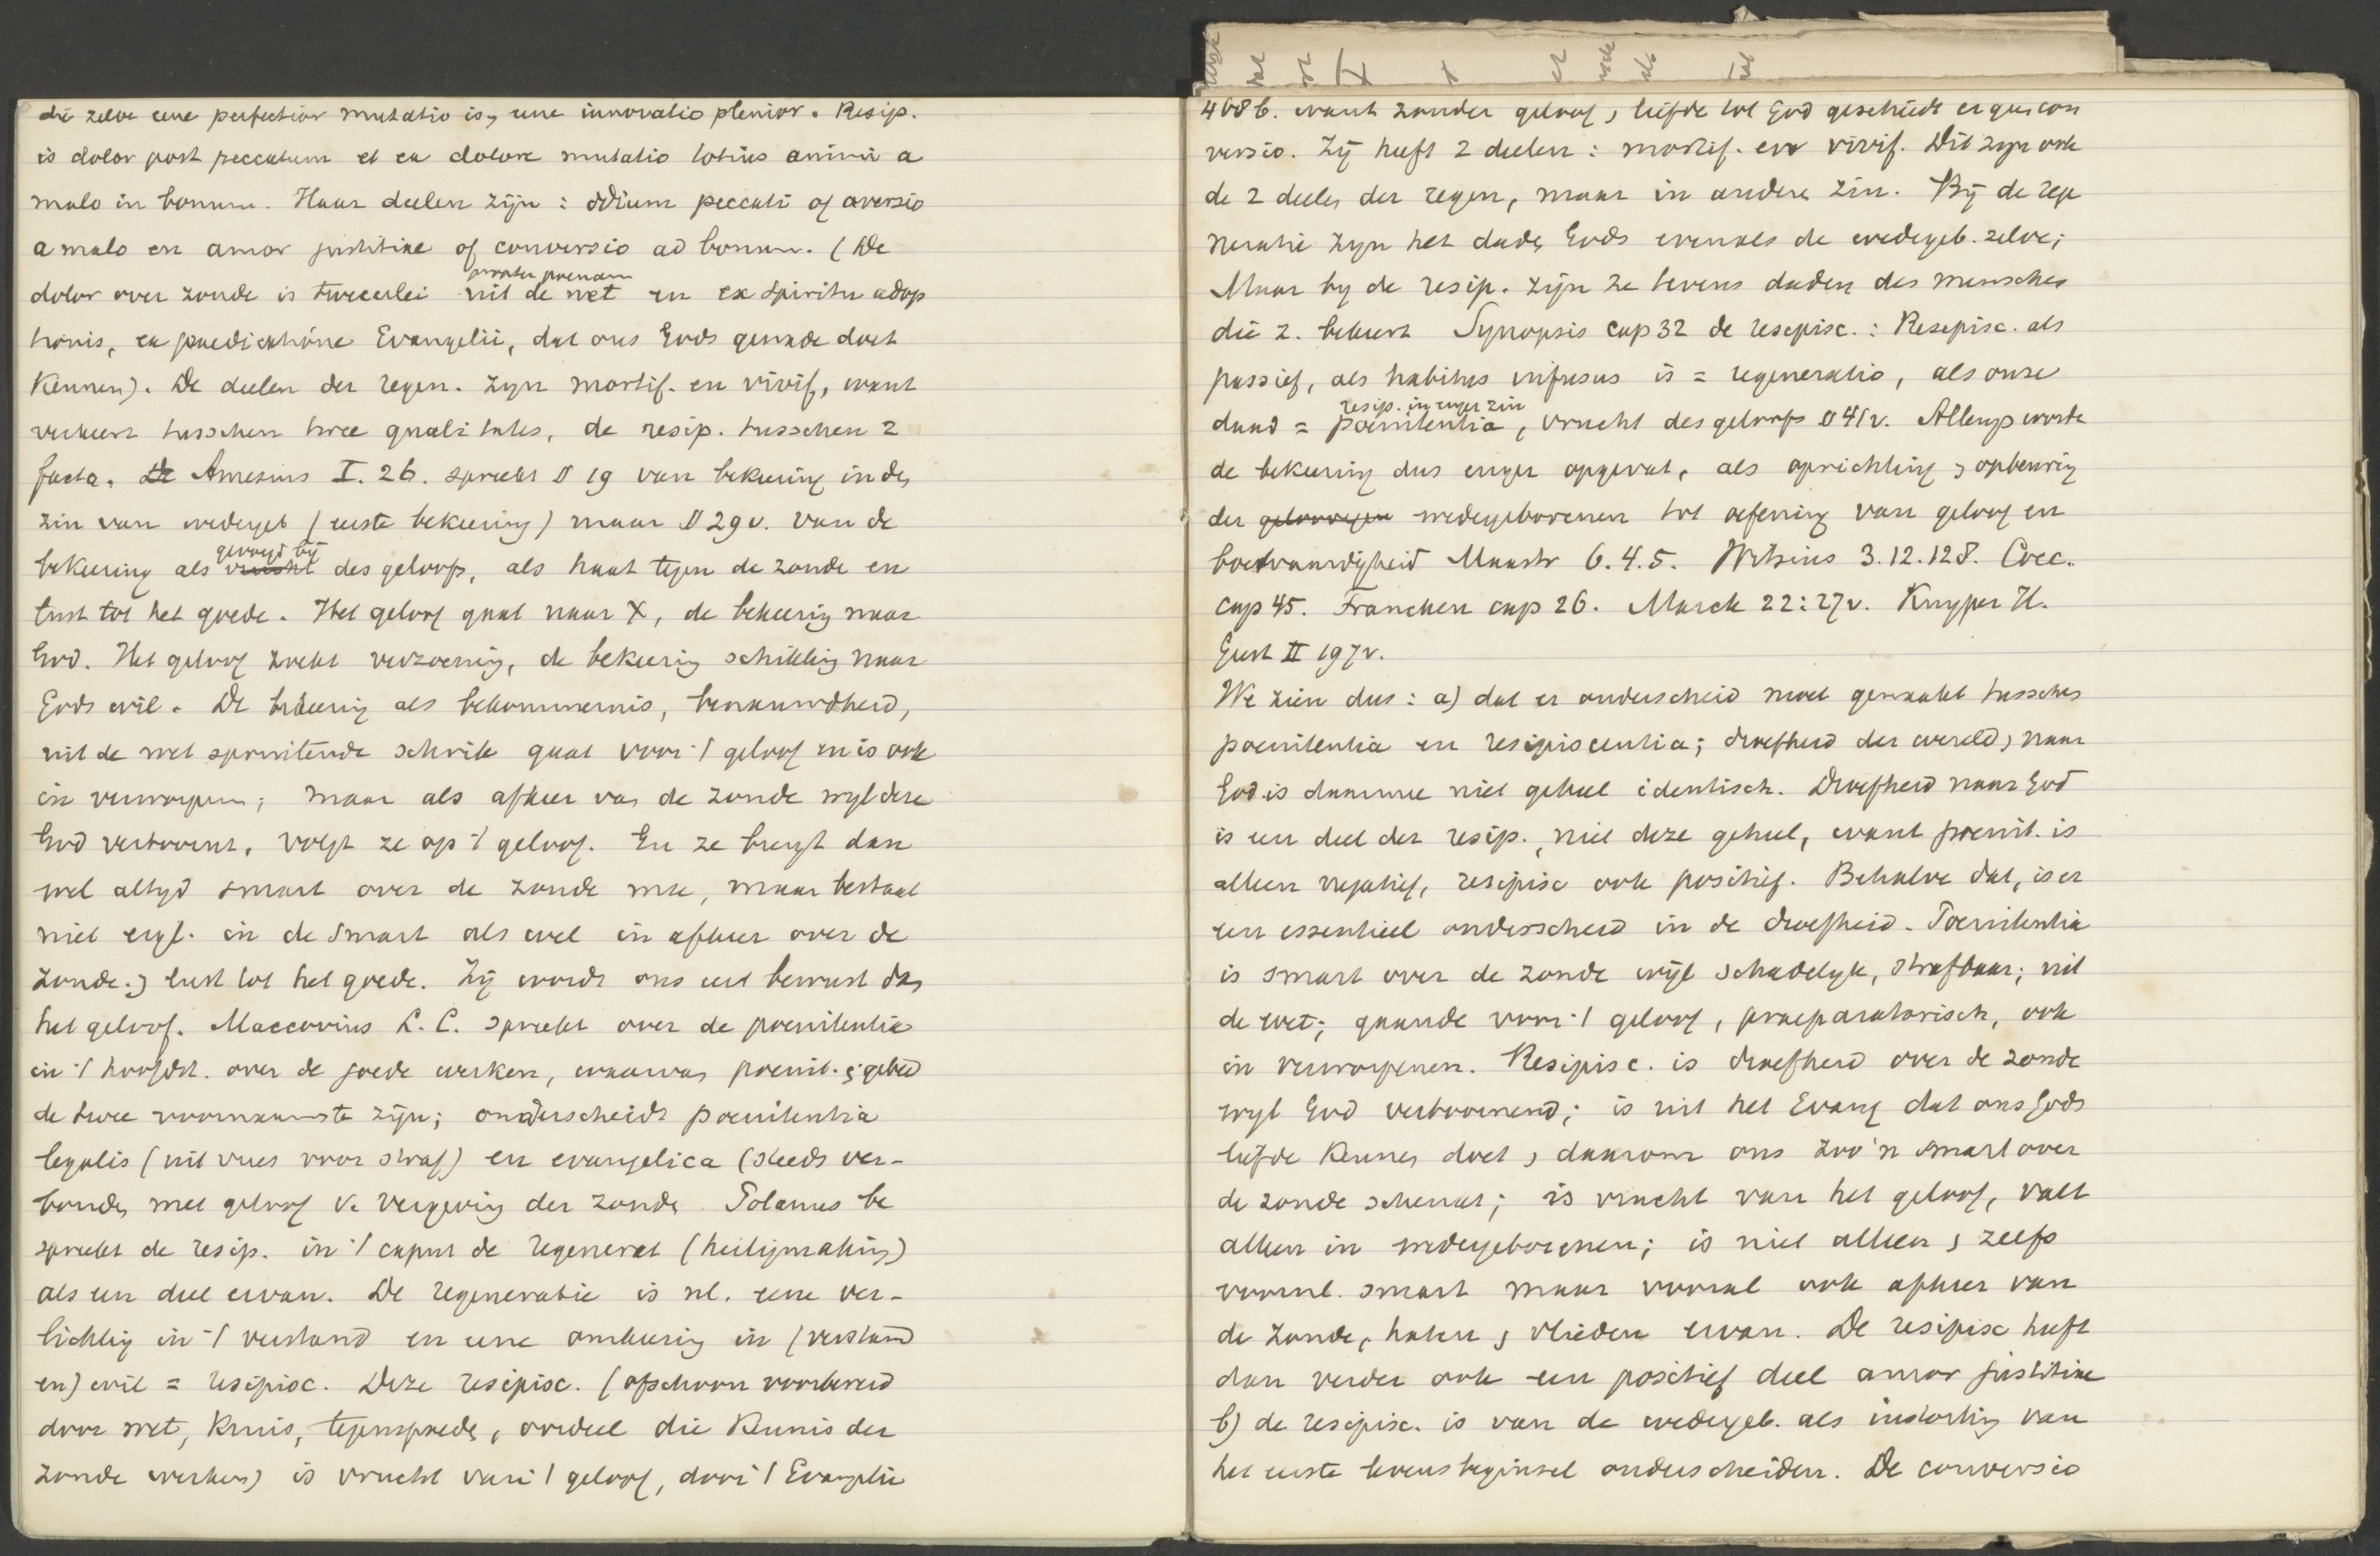 die zelve eene perfectior mutatio is, eene innovatio plenior. Resip.
is dolor post peccatum et ex dolore mutatio totius animi a
malo in bonum. Haar deelen zijn : odium peccati of aversio
a malo en amor justitiae of conversio ad bonum. (De
propter poenam
dolor over zonde is tweeerlei uit de wet en ex spiritu adop
tionis, ex praedicatione Evangelii, dat ons Gods genade doet
kennen). De deelen der regen. zyn mortif. en vivif, want
verkeert tusschen twee qualitates, de resip. tusschen 2
facta. De Amesius I. 26. spreekt § 19 van bekeering in den
zin van wedergeb (eerste bekeering) maar § 29 v. van de
gevoegd bij
bekeering als vrucht des geloofs, als haat tegen de zonde en
lust tot het goede. Het geloof gaat naar X, de bekeering naar
God. Het geloof zoekt verzoening, de bekeering schikking naar
Gods wil. De bekeering als bekommernis, benauwdheid,
uit de wet spruitende schrik gaat voor 't geloof en is ook
in verworpenen; maar als afkeer van de zonde wyl deze
God vertoornt, volgt ze op 't geloof. En ze brengt dan
wel altyd smart over de zonde mee, maar bestaat
niet eigl. in de smart als wel in afkeer over de
zonde. & lust tot het goede. Zij wordt ons eer bewust dan
het geloof. Maccovius L. C. spreekt over de poenitentia
in 't hoofdst. over de goede werken, waarvan poenit. & gebed
de twee voornaamste zijn; onderscheidt poenitentia
legalis (uit vrees voor straf) en evangelica (steeds ver-
bonden met geloof v. vergeving der zonden Polanus be
spreekt de resip. in 't caput de regenerat (heiligmaking)
als een deel ervan. De regeneratie is nl. eene ver-
lichting in 't verstand en eene omkeering in (verstand
en) wil = resipisc. Deze resipisc. (ofschoon voorbereid
door wet, kruis, tegenspoeden, oordeel die kennis der
zonde werken) is vrucht van 't geloof, door 't Evangelie
408 b. want zonder geloof & liefde tot God geschiedt er geen con
versio. Zij heeft 2 deelen : mortif. en vivif. Dit zyn ook
de 2 deelen der regen, maar in andere zin. Bij de rege
neratie zyn het daden Gods evenals de wedergeb. zelve;
Maar by de resip. zijn ze tevens daden des menschen
die z. bekeert Synopsis cap 32 de resipisc. : Resipisc. als
passief, als habitus infusus is = regeneratio, als onze
resip. in enger zin
daad = poenitentia, vrucht des geloofs § 41 v. Allengs werd
de bekeering dus enger opgevat, als oprichting & opbeuring
der geloovigen wedergeborenen tot oefening van geloof en
boetvaardigheid Mastr 6. 4. 5. Witsius 3. 12. 128. Cocc.
cap 45. Francken cap 26. Marck 22 : 27 v. Kuyper H.
Geest II 197 v.
We zien dus : a) dat er onderscheid moet gemaakt tusschen
poenitentia en resipiscentia; droefheid der wereld & naar
God is daarmee niet geheel identisch. Droefheid naar God
is een deel der resip., niet deze geheel, want poenit. is
alleen negatief, resipisc ook positief. Behalve dat, is er
een essentieel onderscheid in de droefheid. Poenitentia
is smart over de zonde wijl schadelyk, strafbaar; uit
de wet; gaande voor 't geloof, praeparatorisch, ook
in verworpenen. Resipisc. is droefheid over de zonde
wyl God vertoornend; is uit het Evang dat ons Gods
liefde kennen doet & daarom ons zoo'n smart over
de zonde schenkt; is vrucht van het geloof, valt
alleen in wedergeborenen; is niet alleen & zelfs
voornl. smart maar vooral ook afkeer van
de zonde, haten & vlieden ervan. De resipisc heeft
dan verder ook een positief deel amor justitiae
b) de resipisc. is van de wedergeb. als instorting van
het eerste levensbeginsel onderscheiden. De conversio